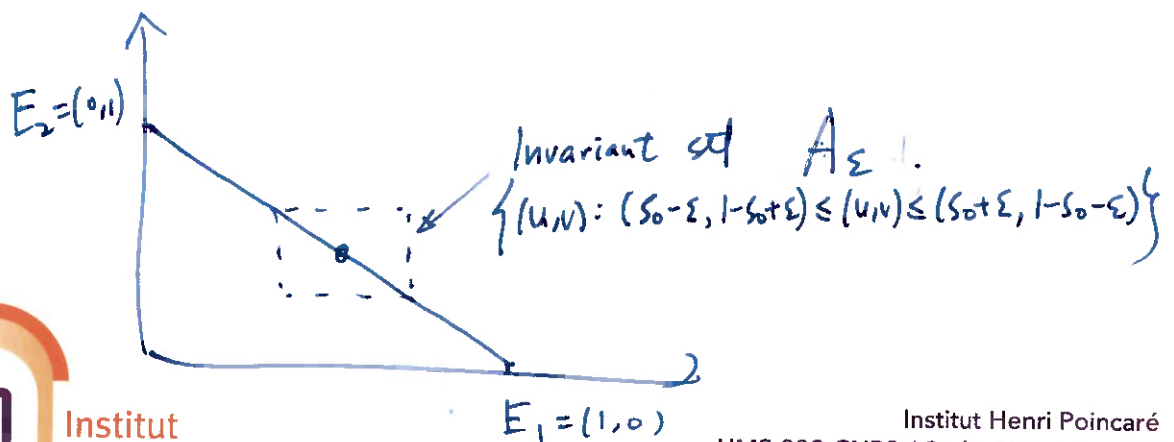 E₂=(0,1)
Invariant set A_Σ.
{(u,v): (s₀-Σ, 1-s₀+Σ) ≤ (u,v) ≤ (s₀+Σ, 1-s₀-Σ)}
E₁=(1,0)
Institut
Institut Henri Poincaré